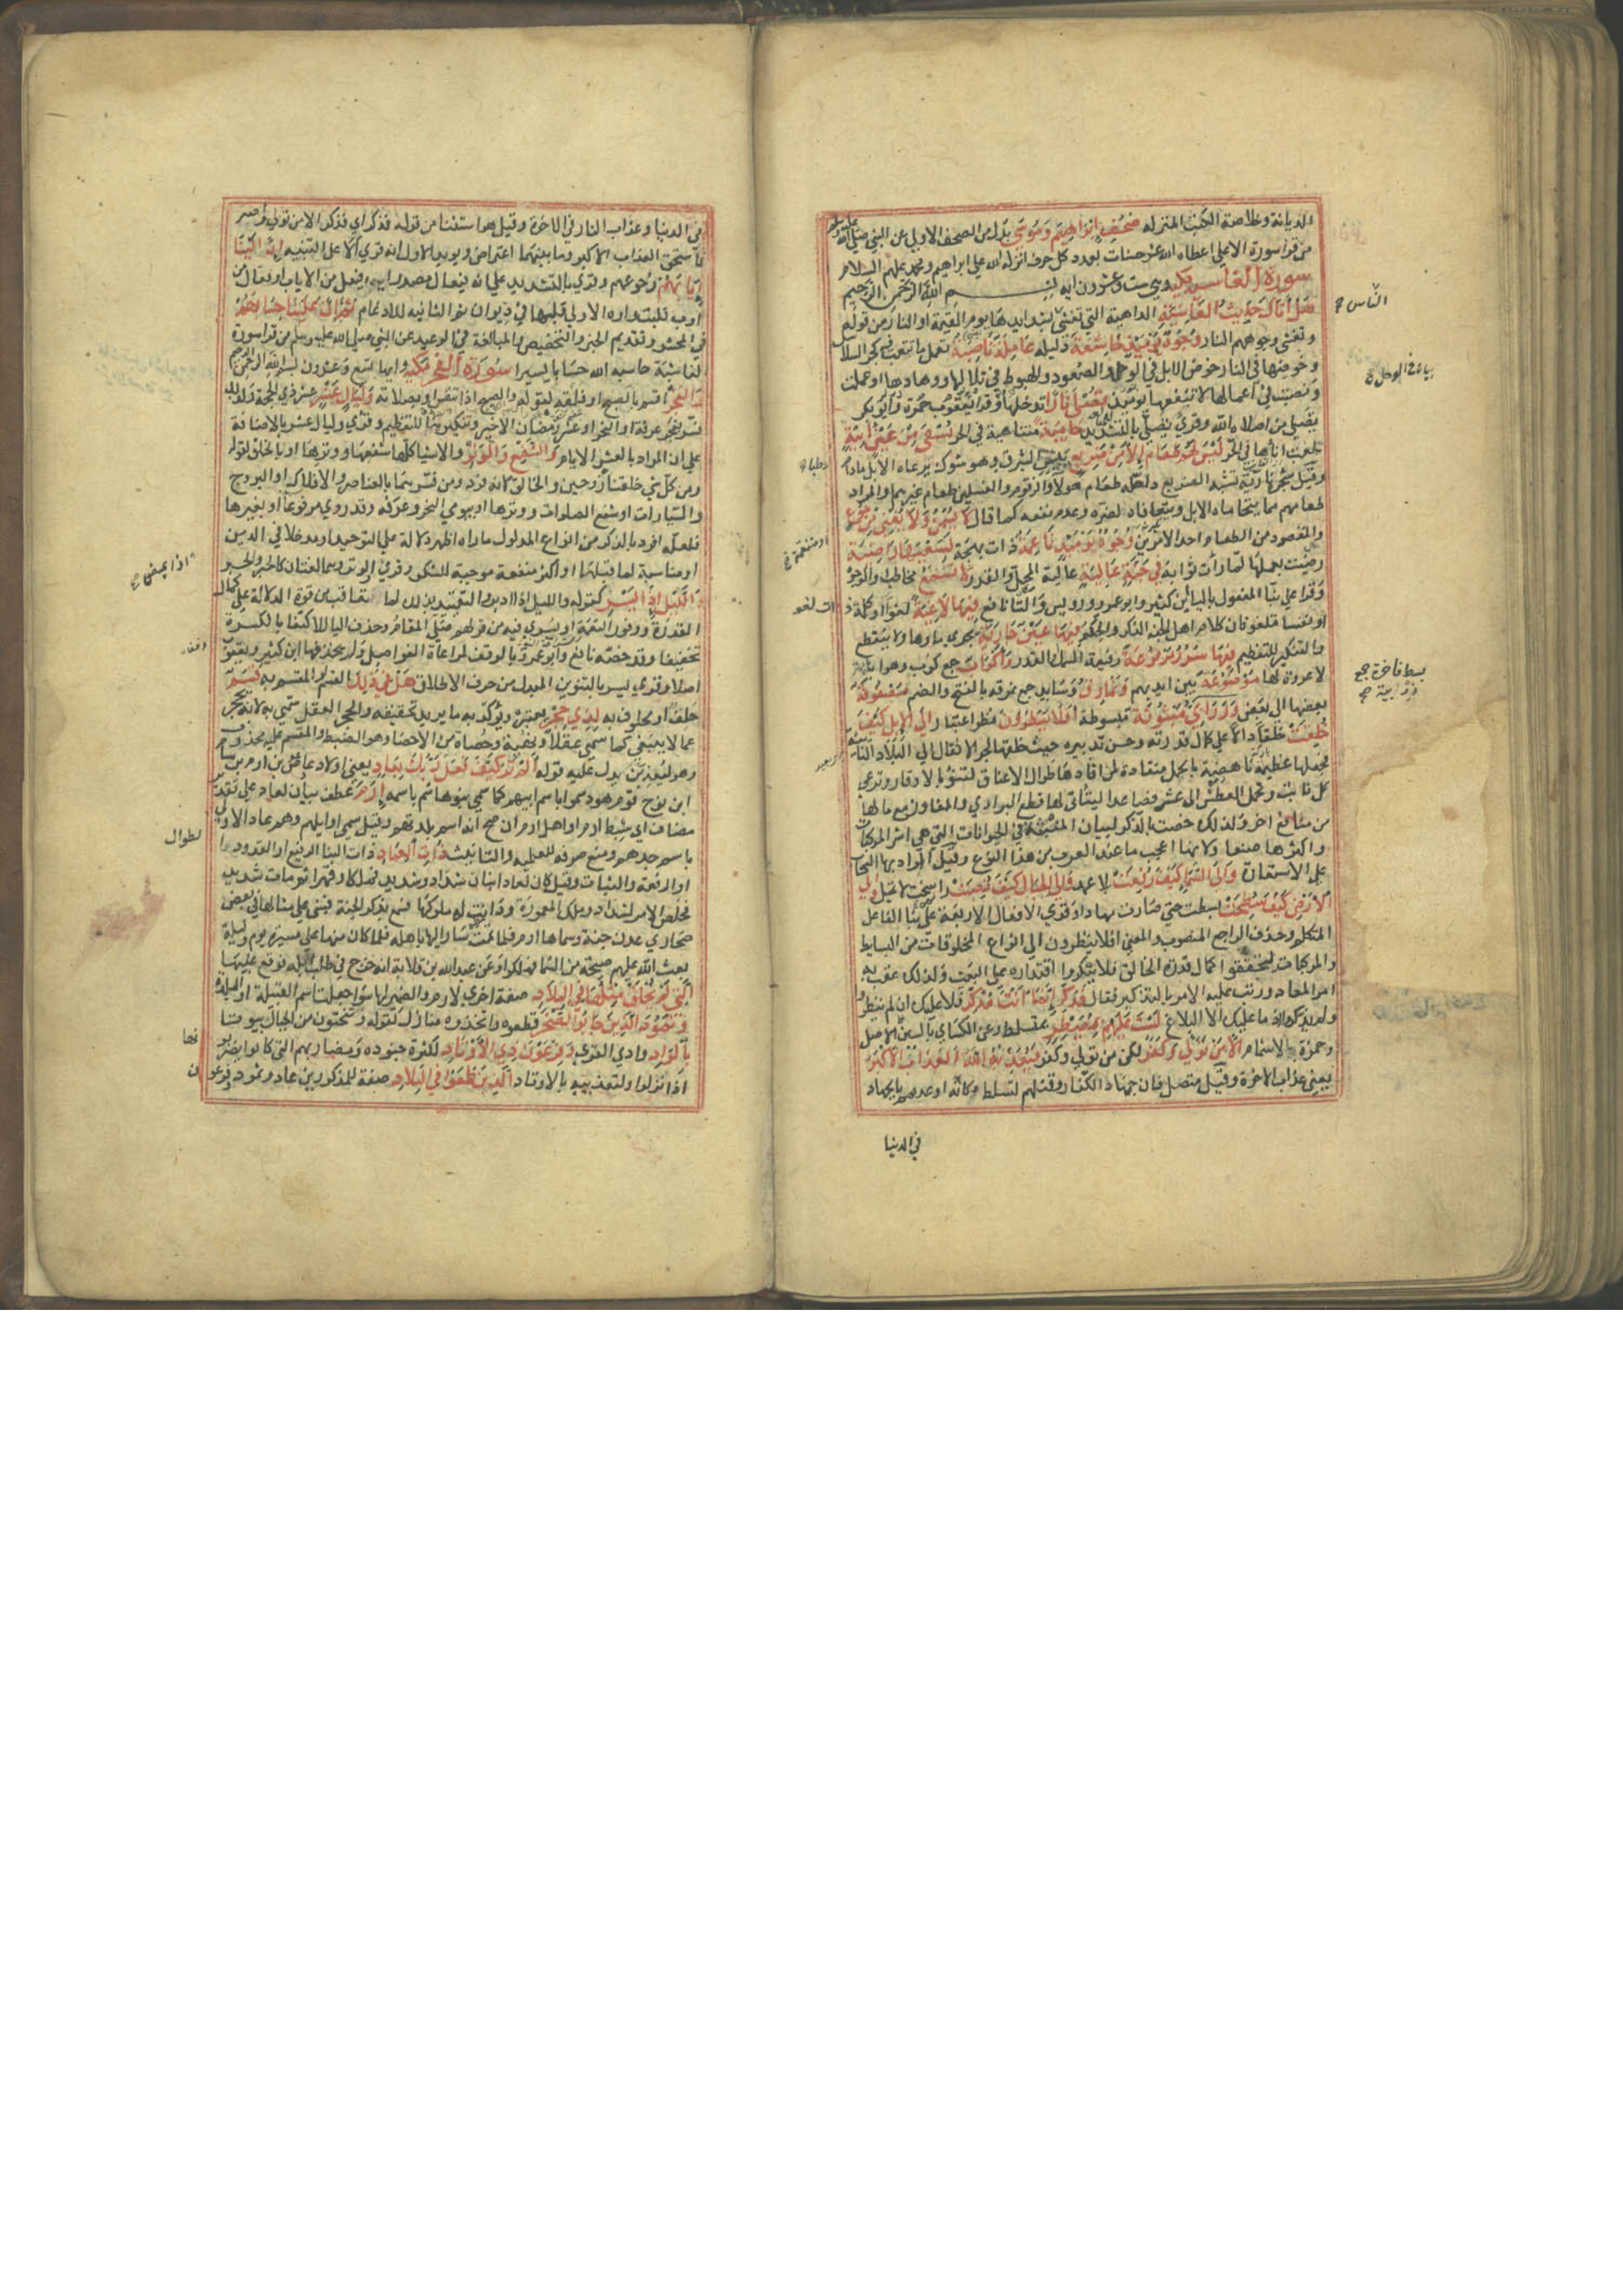 الديانة وخلاصة الكتب المنزله صُحُفِ اِبْرَاهِيمَ وَمُوسَى بدل من الصحف الاولي عن النبي صلي الله عليه وسلم
من قرا سورة الاعلي اعطاه الله عشر حسنات بعدد كل حرف انزله الله علي ابراهيم وموسي ومحمد عليهم السلام
سورة الغاشية مكية وهي ست وعشرون ايه بسم الله الرحمن الرحيم
هَلْ أتَاكَ حَدِيثُ الغَاشِيَةِ الداهية التي تغشي بشدايدها يوم القيمة او النار من قوله
وتغشي وجوههم النار وُجُوهٌ يَوْمَئِذٍ خَاشِعَةٌ ذليله عَامِلَةٌ نَاصِبَةٌ تعمل ما تتعب فيه كجر السلاسل
وخوضها في النار خوض الابل في الوحل والصعود والهبوط في تلالها ووهادها او عملت
ونصبت في اعمال لا تنفعها يومئذ تَصْلَى نَارًا تدخلها وقرا يعقوب حمزة وابو بكر
تصلي من اصلاه الله وقري تصلي بالتشديد حَامِيَةً متناهية في الحر تُسْقَى مِنْ عَيْنٍ اٰنِيَةٍ
بلغت اناها في الحر لَيْسَ لَهُمْ طَعَامٌ اِلَّا مِنْ ضَرِيعٍ الشبرق وهو شوك يرعاه الابل مادام
وقيل شجرة نارية تشبه الضريع ولعله طعام هولاء والزقوم والغسلين طعام غيرهم والمراد
طعامهم مما يتحاماه الابل ويتعافاه لضره وعدم نفعه كما قال لَا يُسْمِنُ وَلَا يُغْنِي مِنْ جُوعٍ
والمقصود من الطعام احد الامرين وُجُوهٌ يَوْمَئِذٍ نَاعِمَةٌ ذات بهجة لِسَعْيِهَا رَاضِيَةٌ
رضيت بعملها لما رات ثوابه فِي جَنَّةٍ عَالِيَةٍ عالية المحل والقدر لَا تَسْمَعُ مخاطب والوجوه
وقرا علي بنا المفعول بالياء ابن كثير وابو عمرو ورويس وبالتاء نافع فِيهَا لَاغِيَةً لغوا او كلمة ذات لغو
او نفسا تلغو فان كلام اهل الجنة الذكر والحكم فِيهَا عَيْنٌ جَارِيَةٌ يجري ماوها ولا ينقطع
والتنكير للتعظيم فِيهَا سُرُرٌ مَرْفُوعَةٌ رفيعة السمك او القدر وَاَكْوَابٌ جمع كوب وهو انية
لا عروة لها مَوْضُوعَةٌ بين ايديهم وَنَمَارِقُ وسايد جمع نمرقه بالفتح والضم مَصْفُوفَةٌ
بعضها الي بعض وَزَرَابِيُّ مَبْثُوثَةٌ مبسوطة اَفَلَا يَنْظُرُونَ نظر اعتبار اِلَى الْاِبِلِ كَيْفَ
خُلِقَتْ خلقا دالا علي كمال قدرته وحسن تدبيره حيث خلقها لجر الاثقال الي البلاد النائية
فجعلها عظيمة ناهضة بالحمل منقادة لمن اقادها طوال الاعناق لتنوء بالاوقار وترعي
كل نابت وتحمل العطش الي عشر فصاعدا ليتاتي لها قطع البوادي والمفاوز مع مالها
من منافع اخر ولذلك خصت بالذكر لبيان الايات المنبثة في الحيوانات التي هي اشرف المركبات
واكثرها صنعا ولانها اعجب ما عند العرب من هذا النوع وقيل المراد بها السحاب
علي الاستعارة وَاِلَى السَّمَاءِ كَيْفَ رُفِعَتْ بلا عمد وَاِلَى الْجِبَالِ كَيْفَ نُصِبَتْ راسخة لا تميل وَاِلَى
الْاَرْضِ كَيْفَ سُطِحَتْ بسطت حتي صارت مهادا وقري الافعال الاربعة علي بنا الفاعل
المتكلم وحذف الراجع المنصوب والمعني افلا ينظرون الي انواع المخلوقات من البسايط
والمركبات ليتحققوا كمال قدرة الخالق فلا ينكروا اقتداره علي البعث ولذلك عقب به
امر المعاد ورتب عليه الامر بالتذكير فقال فَذَكِّرْ اِنَّمَا اَنْتَ مُذَكِّرٌ فلا عليك ان لم ينظروا
ولم يذكروا اذ ما عليك الا البلاغ لَسْتَ عَلَيْهِمْ بِمُصَيْطِرٍ بمتسلط وعن الكسائي بالسين علي الاصل
وحمزة بالاشمام اِلَّا مَنْ تَوَلَّى وَكَفَرَ لكن من تولي وكفر فَيُعَذِّبُهُ اللّٰهُ الْعَذَابَ الْاَكْبَرَ
يعني عذاب الاخرة وقيل متصل فان جهاد الكفار وقتلهم تسلط وكانه اوعدهم بالجهاد
في الدنيا
النّاس
بساط فاخرة جمع
زربية
او متنعمة
في الدنيا وعذاب النار في الاخرة وقيل هو استثنا من قوله فذكر اي فذكر الا من تولي واصر
فاستحق العذاب الاكبر وما بينهما اعتراض ويويد الاول انه قري الا علي التنبيه اِنَّ اِلَيْنَا
اِيَابَهُمْ رجوعهم وقري بالتشديد علي انه فيعال مصدر ايب فيعل من الاياب او فعال من
اوب قلبت واوه الاولي قلبها في ديوان ثم الثانيه للادغام ثُمَّ اِنَّ عَلَيْنَا حِسَابَهُمْ
في المحشر وتقديم الخبر والتخصيص للمبالغة في الوعيد عن النبي صلي الله عليه وسلم من قرا سورة
الغاشية حاسبه الله حسابا يسيرا سُورَة الفَجر مَكيّة وايها تسع وعشرون بسم الله الرحمن الرحيم
وَالْفَجْرِ اقسم بالصبح او فلقه لقوله والصبح اذا تنفس او بصلاته وَلَيَالٍ عَشْرٍ عشر ذي الحجة ولذلك
فسر بفجر عرفة او النحر او عشر رمضان الاخير وتنكيرها للتعظيم وقري وليال عشر بالاضافة
علي ان المراد بالعشر الايام وَالشَّفْعِ وَالْوَتْرِ والاشيا كلها شفعها ووترها او بالخلق لقوله
ومن كل شي خلقنا زوجين والخالق لانه فرد ومن فسرهما بالعناصر والافلاك او البروج
والسيارات او شفع الصلوات ووترها او بيومي النحر وعرفه وقد روي مرفوعا او بغيرها
فلعله افرد بالذكر من انواع المدلول ما راه اظهر دلالة علي التوحيد او مدخلا في الدين
او مناسبة لما قبلهما او اكثر منفعة موجبة للشكر وقري الوتر وهما لغتان كالحبر والحبر
وَالَّيْلِ اِذَا يَسْرِ كقوله والليل اذا ادبر والتقييد بذلك لما في التعاقب من قوة الدلالة علي كمال
القدرة ووفور النعمة او يسري فيه من قولهم صلي المقام وحذف اليا للاكتفا بالكسرة
تخفيفا وقد خصه نافع وابو عمرو بالوقف لمراعاة الفواصل ولم يحذفها ابن كثير ويعقوب
اصلا وقري يسر بالتنوين المبدل من حرف الاطلاق هَلْ فِي ذٰلِكَ القسم او المقسم به قَسَمٌ
حلف او محلوف به لِذِي حِجْرٍ يعتبره ويوكد به ما يريد تحقيقه والحجر العقل سمي به لانه يحجر
عما لا ينبغي كما سمي عقلا ونهية وحصاة من الاحصا وهو الضبط والمقسم عليه محذوف
وهو ليعذبن يدل عليه قوله اَلَمْ تَرَ كَيْفَ فَعَلَ رَبُّكَ بِعَادٍ يعني اولاد عاد بن عوص بن ارم بن سام
ابن نوح قوم هود سموا باسم ابيهم كما سمي بنو هاشم باسمه اِرَمَ عطف بيان لعاد علي تقدير
مضاف اي سبط ارم او اهل ارم ان صح انه اسم بلدتهم وقيل سمي اوايلهم وهم عاد الاولي
باسم جدهم ومنع صرفه للعلمية والتانيث ذَاتِ الْعِمَادِ ذات البنا الرفيع او القدود الطوال
او الرفعة والثبات وقيل كان لعاد ابنان شداد وشديد فملكا وقهرا ثم مات شديد
فخلص الامر لشداد وملك المعمورة ودانت له ملوكها فسمع بذكر الجنة فبني علي مثالها في بعض
صحاري عدن جنة وسماها ارم فلما تمت سار اليها باهله فلما كان منها علي مسيرة يوم وليلة
بعث الله عليهم صيحة من السما فهلكوا وعن عبد الله بن قلابة انه خرج في طلب ابله فوقع عليها
اَلَّتِي لَمْ يُخْلَقْ مِثْلُهَا فِي الْبِلَادِ صفة اخري لارم والضمير لها سوا جعلت اسم القبيلة او البلدة
وَثَمُودَ الَّذِينَ جَابُوا الصَّخْرَ قطعوه واتخذوه منازل لقوله وتنحتون من الجبال بيوتا
بِالْوَادِ وادي القري وَفِرْعَوْنَ ذِي الْاَوْتَادِ لكثرة جنوده ومضاربهم التي كانوا يضربونها
اذا نزلوا ولتعذيبه بالاوتاد اَلَّذِينَ طَغَوْا فِي الْبِلَادِ صفة للمذكورين عاد وثمود وفرعون
اذا يمضي